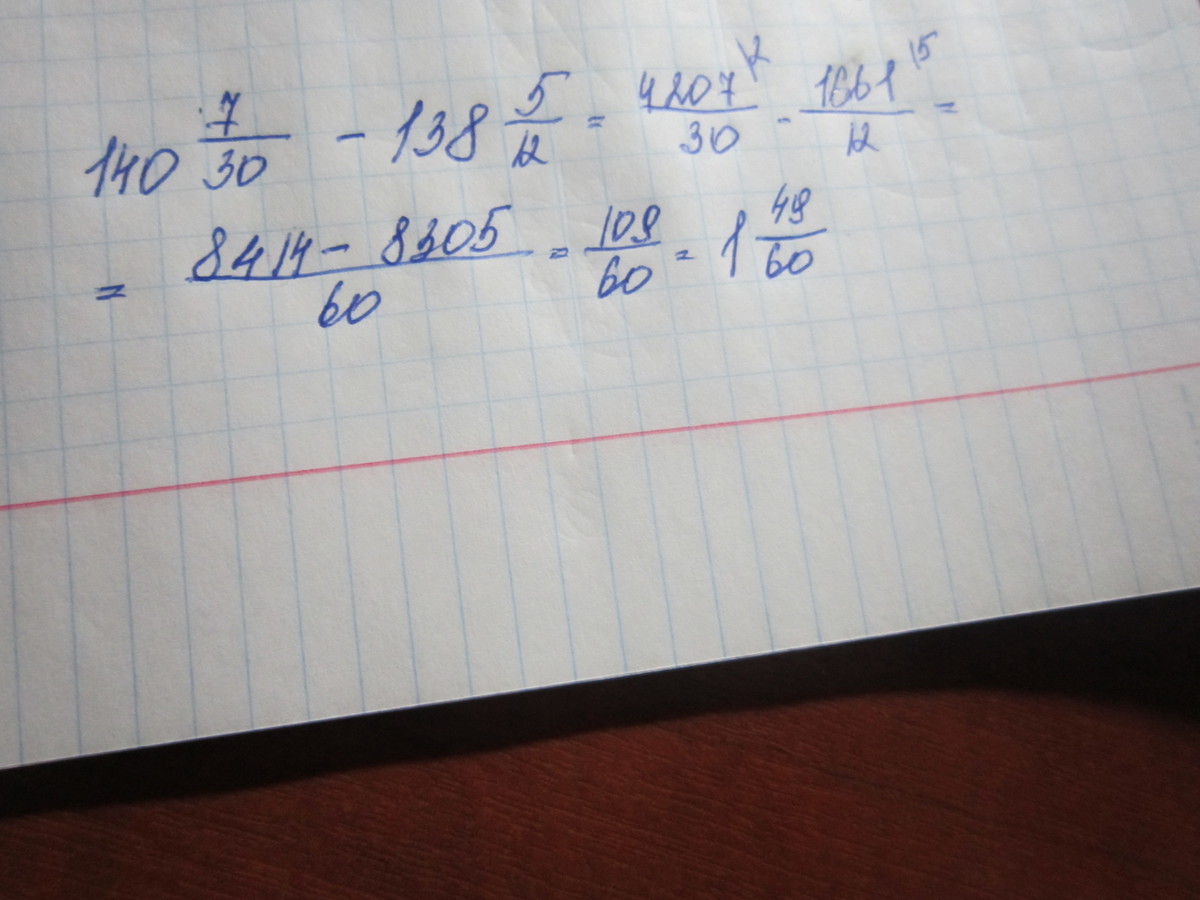 140 7/30 - 138 5/12 = 4207/30 \2 - 1661/12 \5 =
= 8414 - 8305/60 = 109/60 = 1 49/60